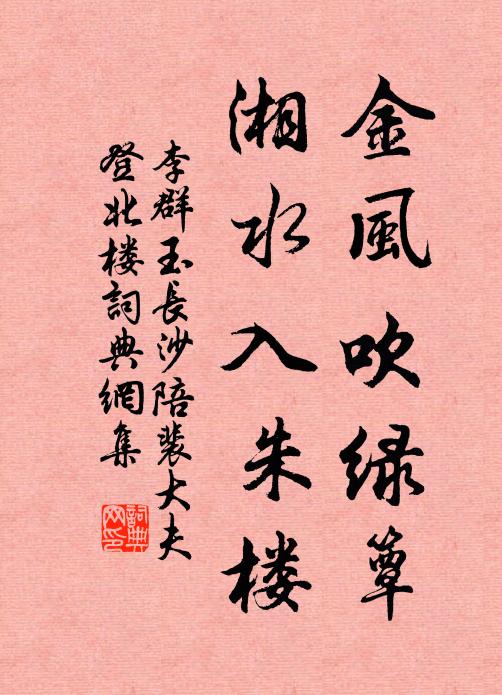 金風吹绿簟
湘水入朱楼
李群玉長沙陪裴大夫
登北楼詞典網集
詞典網印